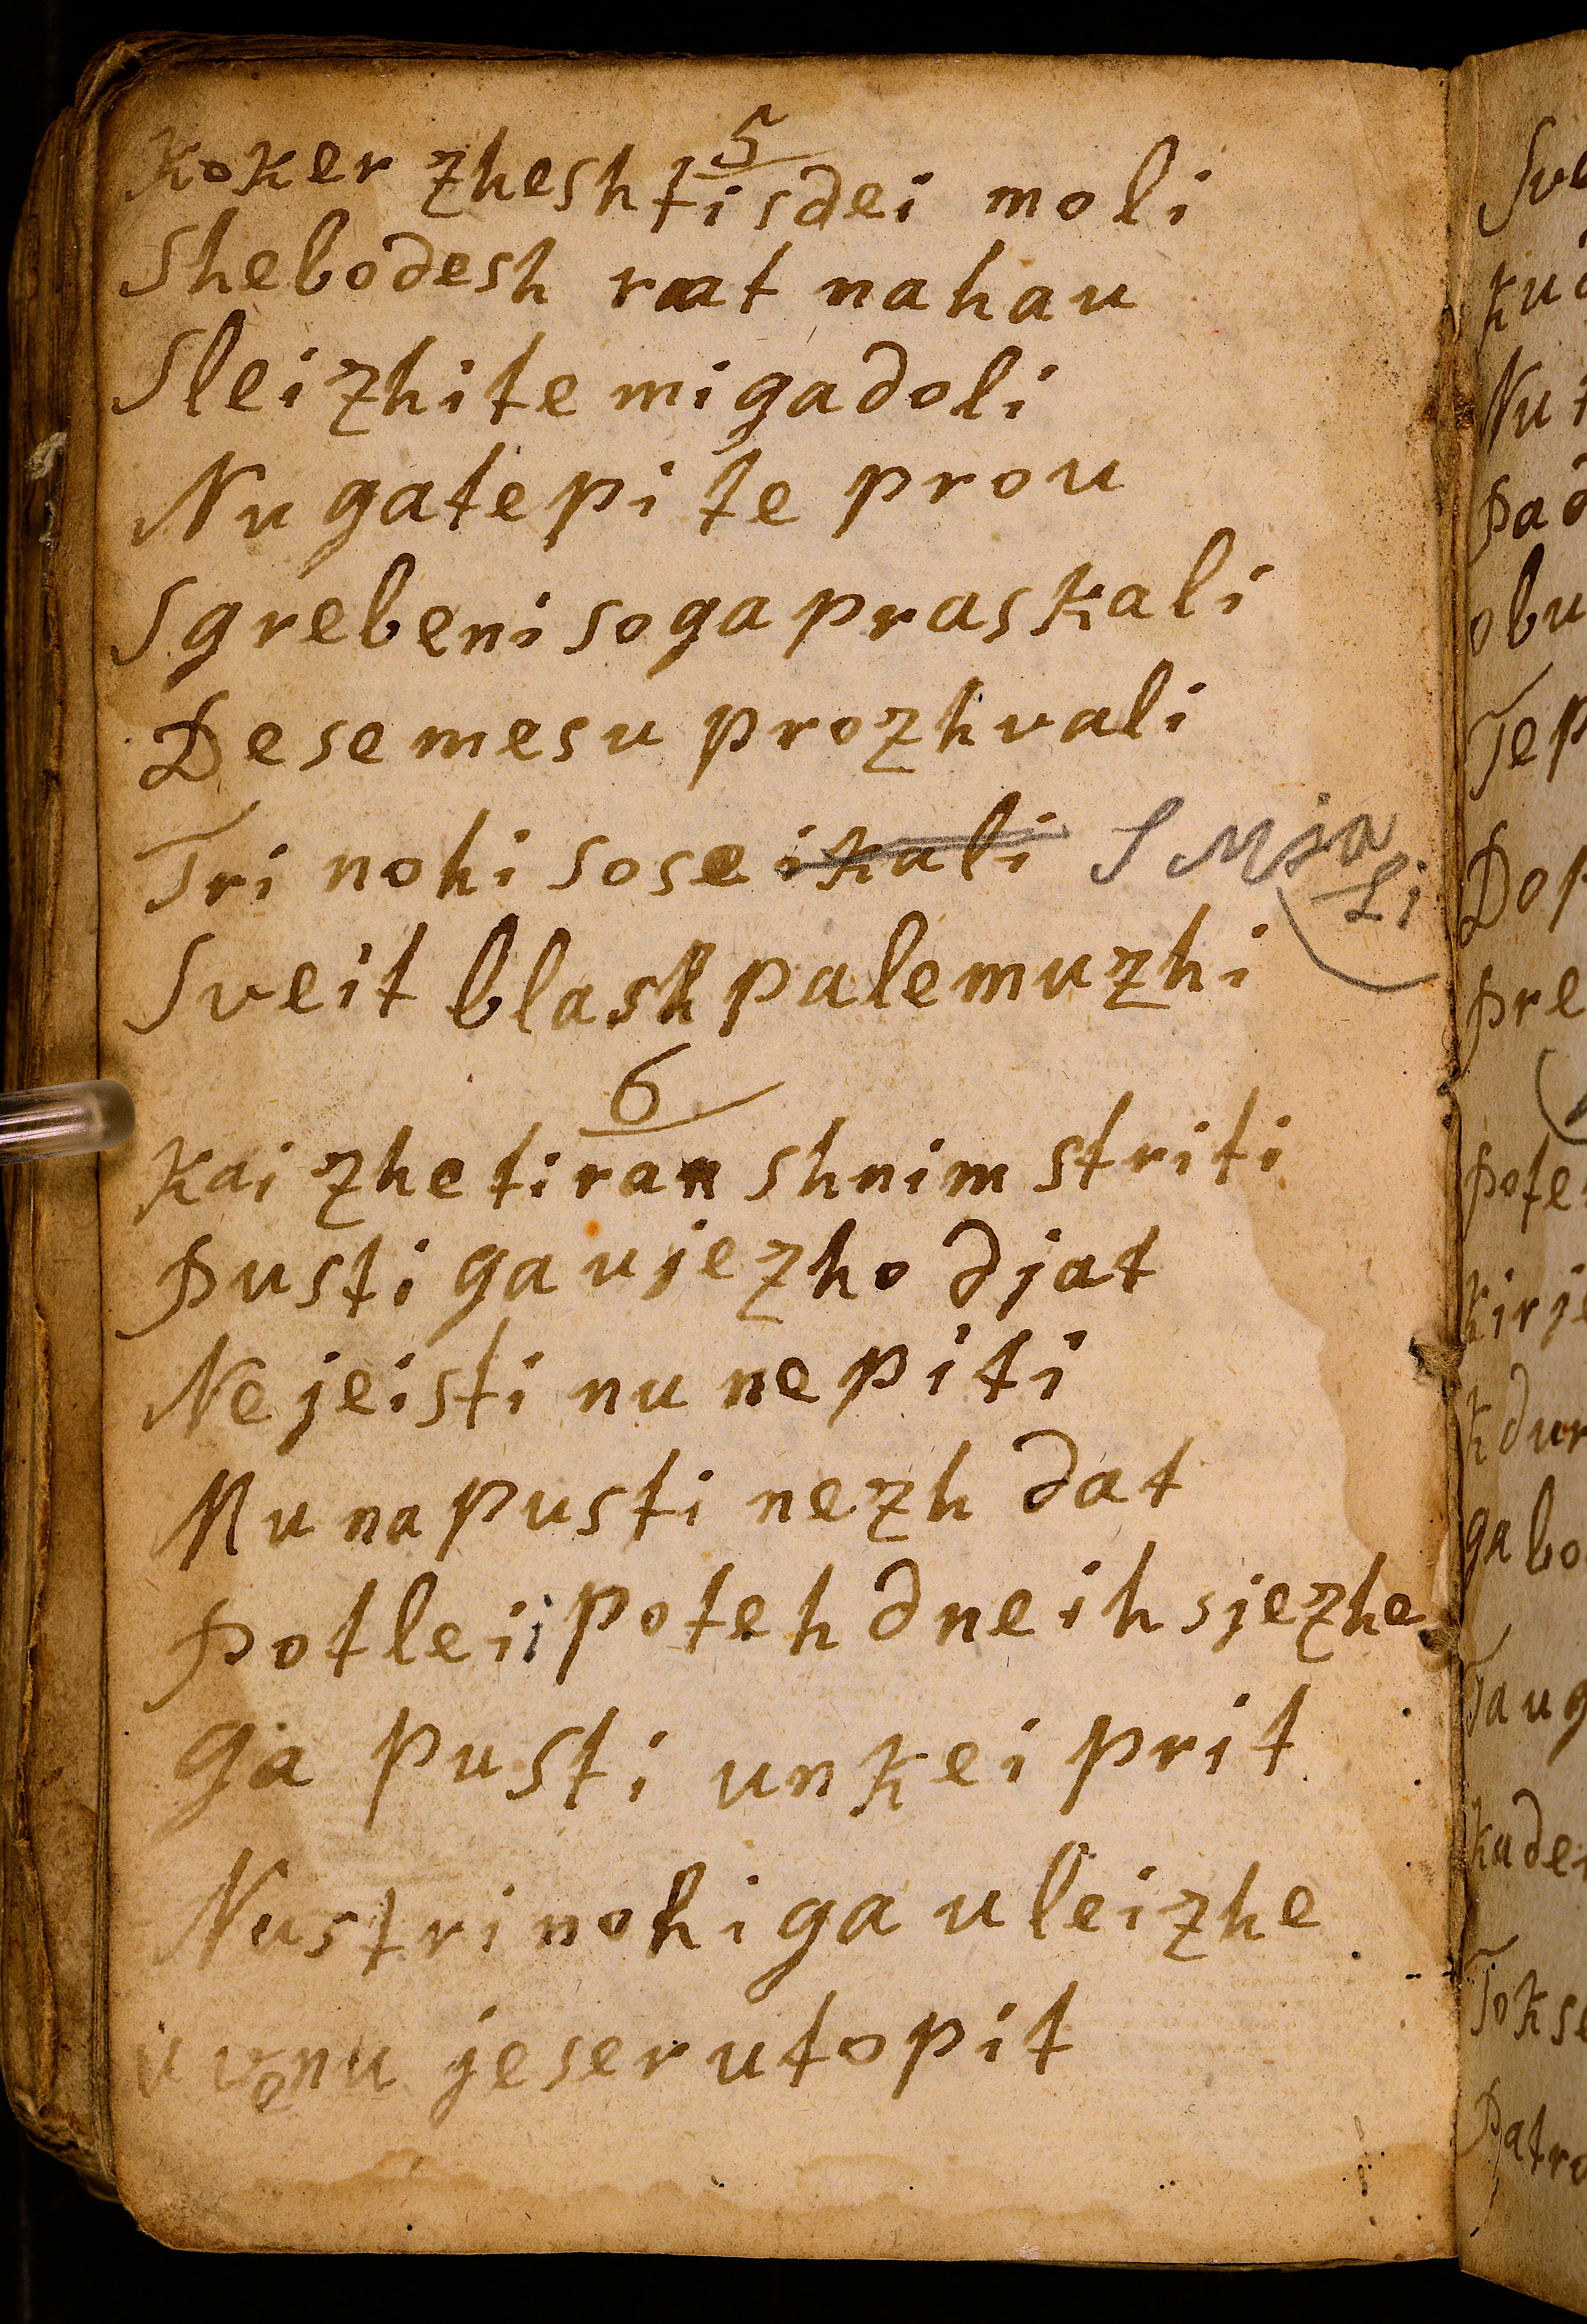 5
Koker zhesh ti sdei moli
Shebodesh raat nahau
Sleizhite mi ga doli
Nu ga tepite prou
Sgrebeni so ga praskali
De se mesu prozhvali
Tri nohi so se ikali S Mja
Li
Sveit blash pale muzhi
6
Kai zhe tiran shnim striti
Pusti ga vjezho djat
Ne jeisti nu ne piti
Mu na pusti nezh dat
Potleii poteh dneih sjezhe
Ga pusti unkei prit
Nu stri nohi ga uleizhe
u vonu jeser utopit
Sve
Nu
Pad
obu
Tep
Dop
Pre
Pote
Kirje
kdur
ga bo
Taug
Kade
Tokse
Patro